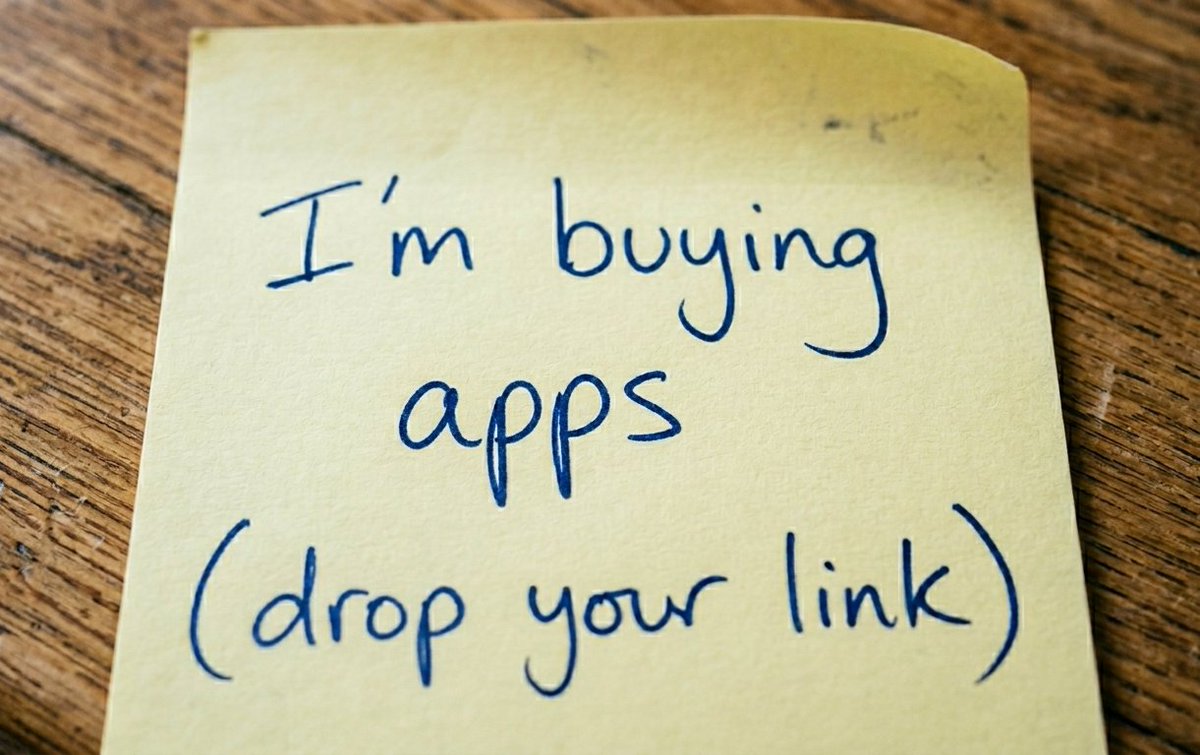 I'm buying
apps
(drop your link)